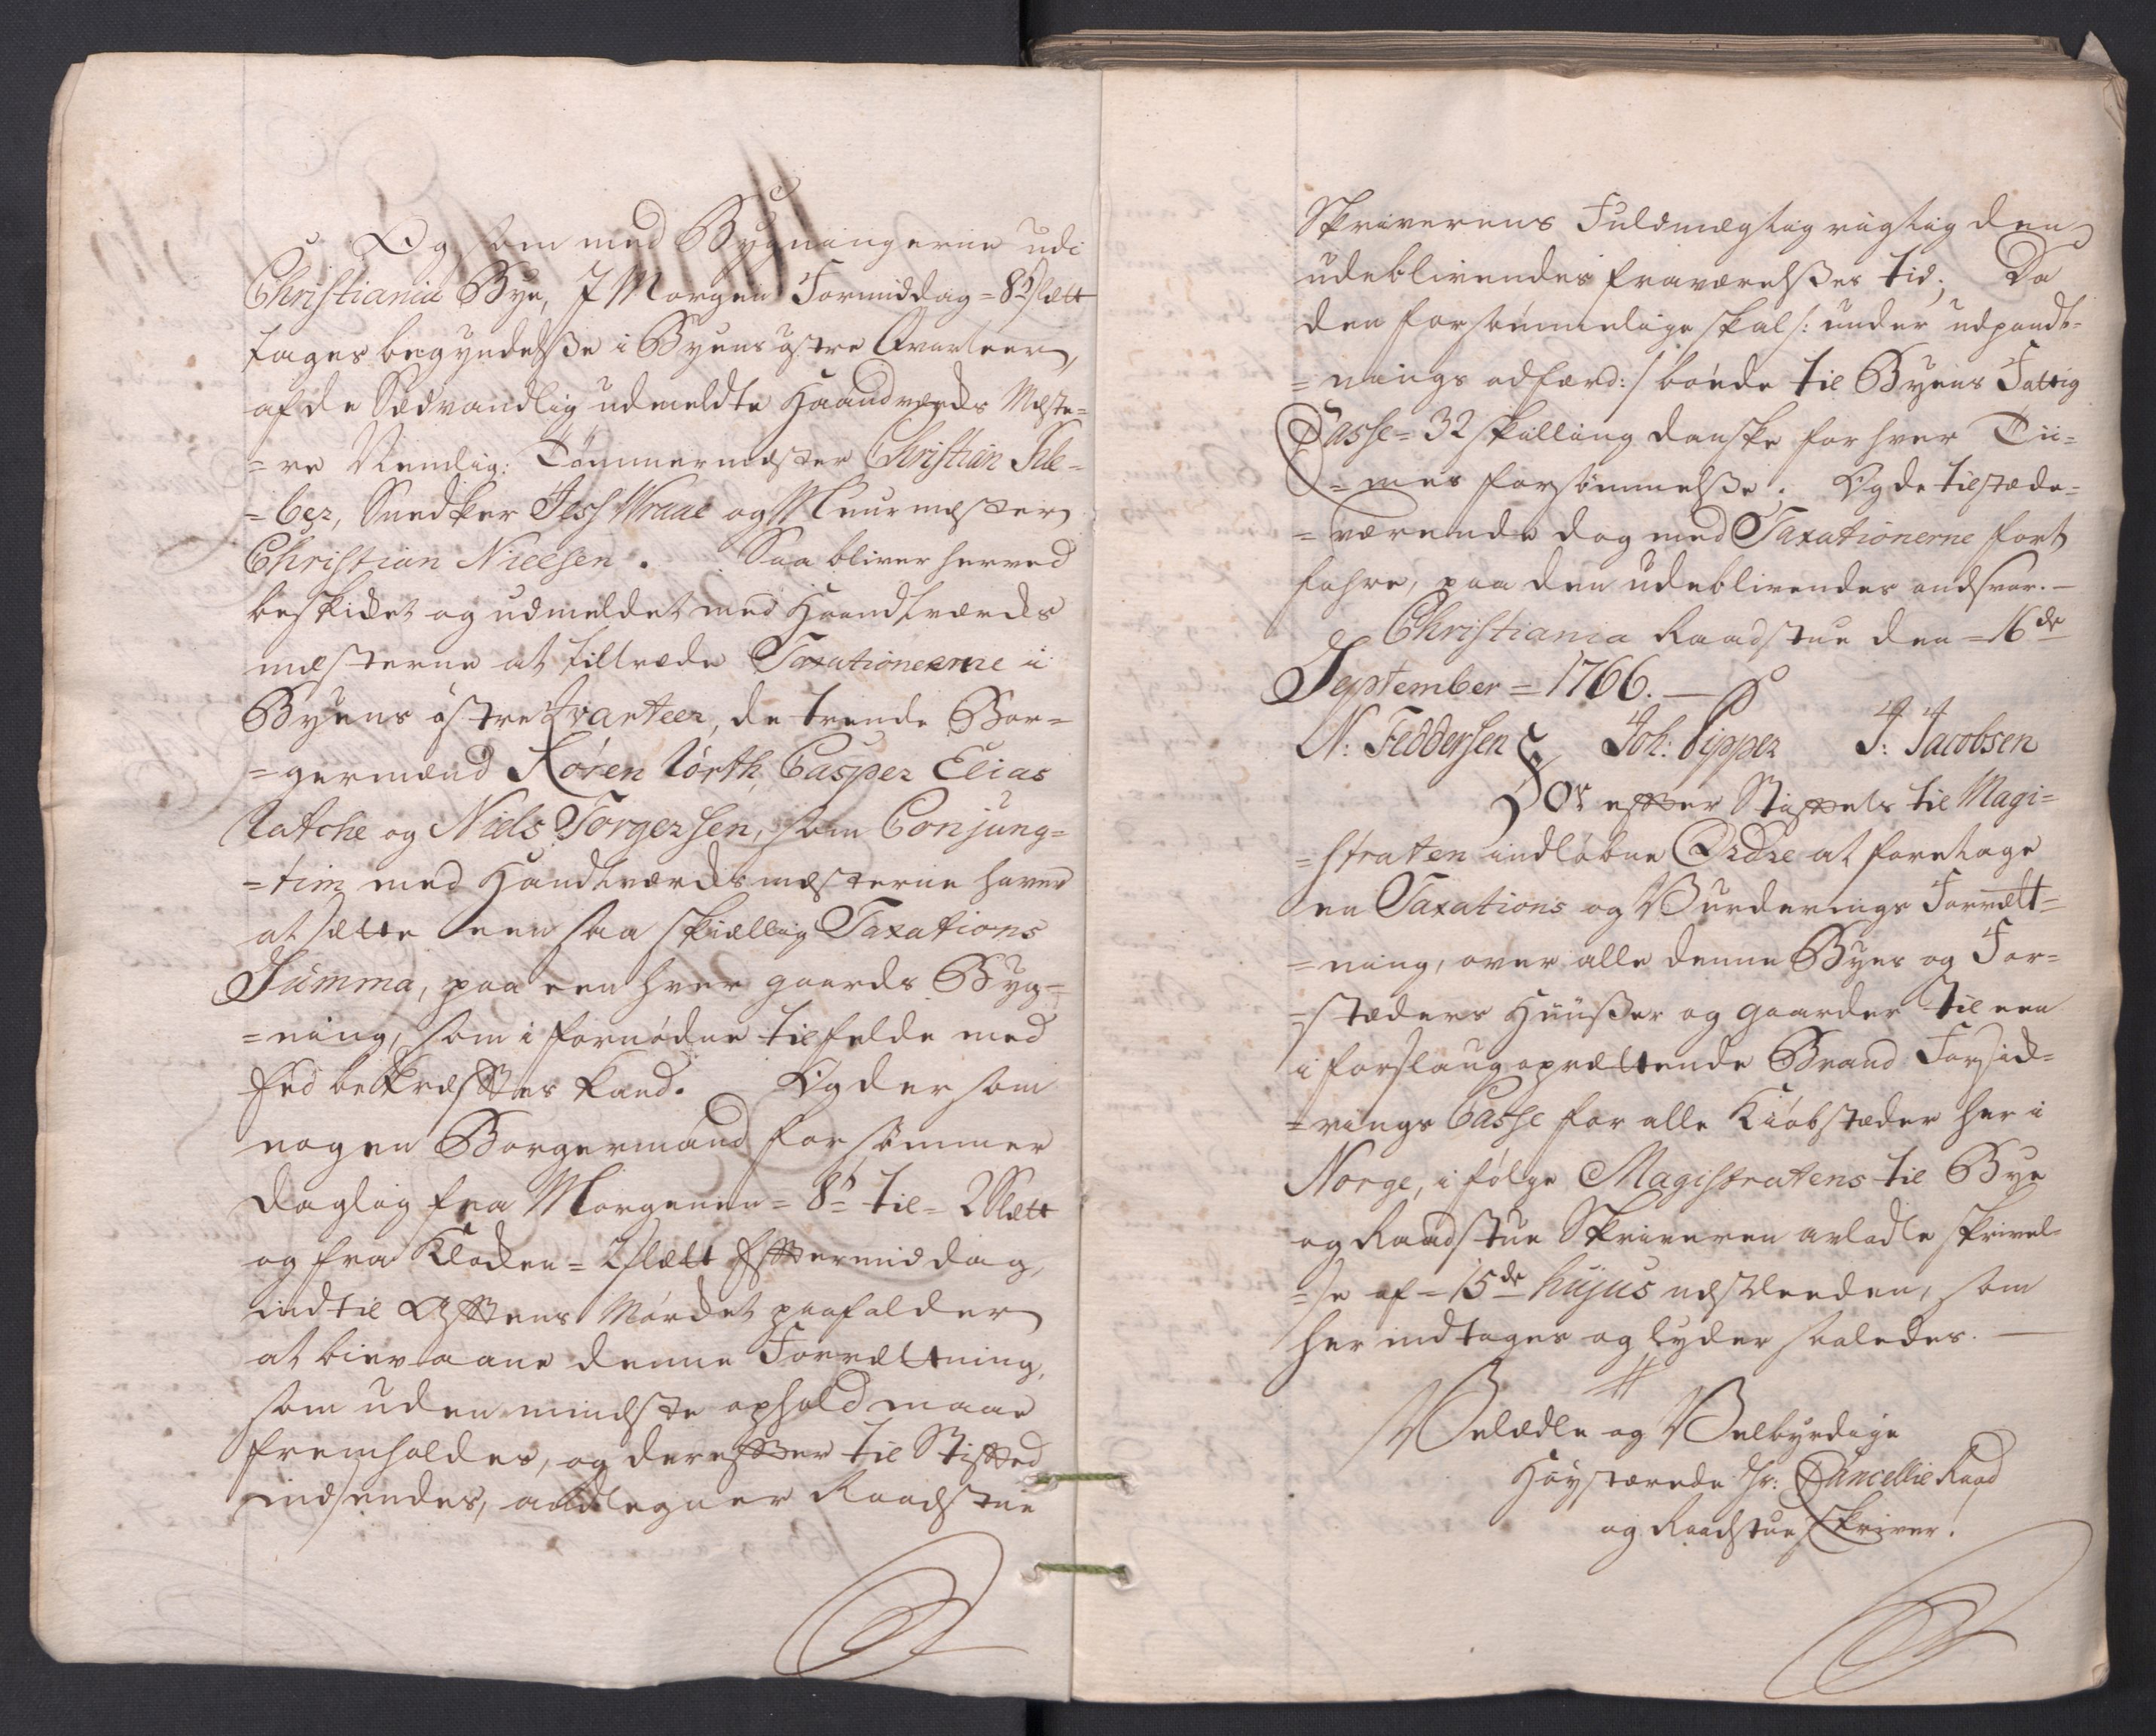 Og som med Bygningerne udi
Christiania Bye, I Morgen Formiddag = 8te slætt
tages begyndelsse i Byens østre Qvarteer,
af de Sædvandlig udmeldte Haandværcks Meste=
=re Nemlig: Tömmermester Christian
=ber, Snedker Jess Wraae og Muurmester
Christian Nielsen. Saa bliver herved
beskicket og udmeldet med Haandtværcks
mesterne at tiltræde Taxationerne i
Byens østre Qvarteer, de trende Bor=
=germænd Søren Lorth, Casper Elias
Latche og Niels Torgersen, som Conjung=
=tim med Handtværcksmesterne haver
at sætte een saa skiellig Taxations
Summa, paa een hver gaards Byg=
=ning, som i fornødne tilfelde med
Eed bekræfftes kand. Og dersom
nogen Borgermand forsømmer
daglig fra Morgenen = 8te til = 12 Slætt
og fra Klocken = 2 slætt Efftermiddag,
indtil Afftens Mørcket paafalder
at bievaane denne Forrættning,
som uden mindste ophold maae
fremholdes, og dereffter til Stifftet
indsendes, andtegner Raadstue
Skriverens Fuldmægtig rigtig den
udeblivendes fraværelsses tid; Da
den forsømmelige skal /: under udpandt=
=nings adfærd :/ bøde til Byens Fattig
Casse = 32 skilling danske for hver Tii=
=mes forsømmelsse. Og de tilstæde=
=værende dog med Taxationerne fort
fahre, paa den udeblivendes andsvar.—
Christiania Raadstue den = 16de
September = 1766.—
N: Feddersen Joh: Pipper J: Jacobsen
Dor effter Stifftets til Magi=
=straten indløbne Ordre at foretage
en Taxations og Vurderings Forrætt=
=ning, over alle denne Byes og For=
=stæders Huusser og gaarder til een
i forslaug oprættende Brand Forsick=
=rings Casse for alle Kiøbstæder her i
Norge, i følge Magistratens til Bye
og Raadstue Skriveren ærladte skrivel=
=se af = 15de hujus udstædende, som
her indtages og lyder saaledes.—
Velædle og Velbyrdige
Høystærede Hr: Cancellie Raad
og Raadstue Skriver!